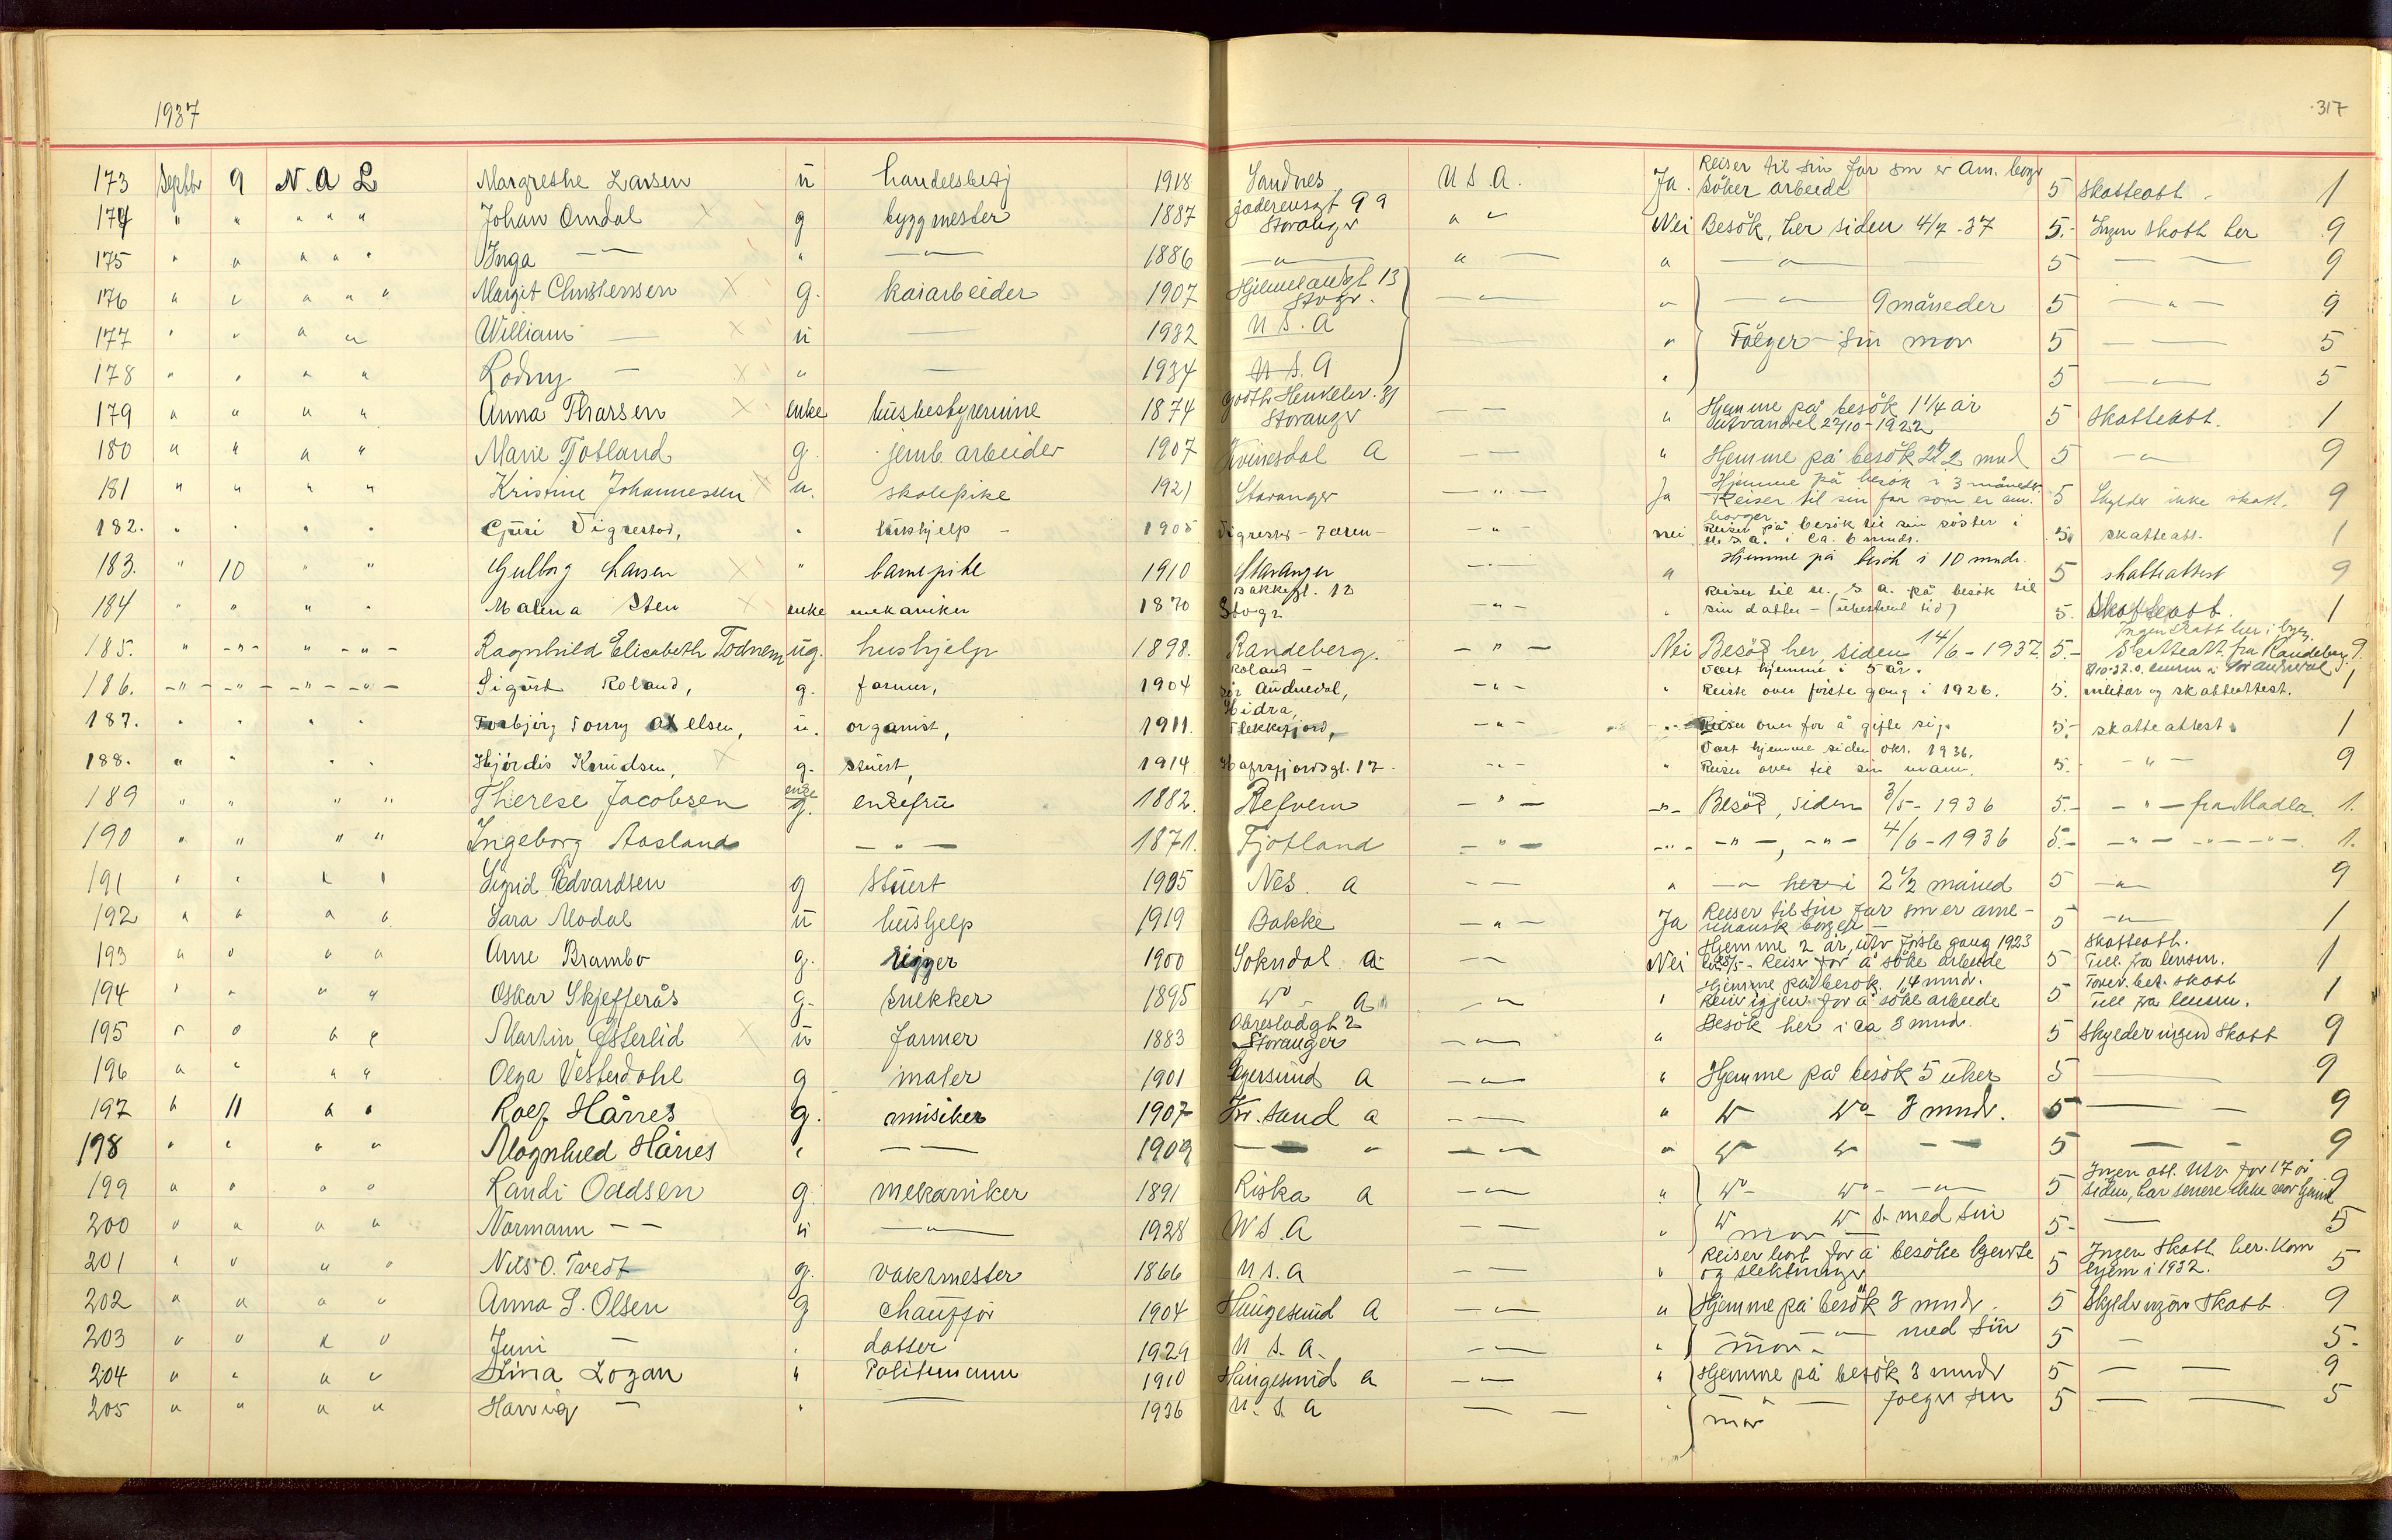 1937
317
173 Septbr 9 N. A L Margrethe Larsen ü handelsbetj 1918 Sandnes U S A. Ja. Reiser til sin far som er Am. borger søker arbeide 5 Skatteatt - 1
174 " " " " " Johan Omdal g byggmester 1887 Stavanger " " Nei Besök, her siden 4/7 - 37 5.- Ingen Skatt her 9
175 " " " " " Inga — " — " — 1886 — " — " — " — " — 5 — — 9
176 " " " " " Margit Christensen g. kaiarbeider 1907 Hjelmelandsgt 13 Stvgr. — " — " — " — 9 måneder 5 — " — 9
177 " " " " William — ü — 1932 U S. A " Følger sin mor 5 — — 5
178 " " " " Rodny — " — 1934 U S. A " 5 — " — 5
179 " " " " Anna Tharsen enke husbestyrerinne 1874 Stavanger — — " Hjemme på besök 1 1/4 år Utvandret 27/10 - 1922 5 Skatteatt. 1
180 " " " " Marie Fjotland g. jernb. arbeider 1907 Kvinesdal A — — " Hjemme på besök 2 1/2 mnd 5 — " — 9
181 " " " " Kristine Johannessen u. skolepike 1921 Stavanger — " — Ja Hjemme på besøk i 3 måneder. Reiser til sin far som er am. borger 5 Skylder ikke skatt. 9
182. " " " " Guri Vigrestad, " hushjelp - 1905 Vigrestad - Jæren - — " — nei Reiser på besøk til sin søster i U. S. A. i ca. 6 mndr. 5. skatteatt. 1
183. " 10 " " Gulborg Larsen " barnepike 1910 Stavanger — " Hjemme på besøk i 10 mndr. 5 skatteattest 9
184 " " " " Malena Sten enke mekaniker 1870 Bakkegt. 12 Stvgr. — " — " Reiser til U. S. A. på besøk til sin datter - (ubestemt tid) 5. Skatteatt. 1
185. " — " — " — " — Ragnhild Elisabeth Todnem ug. hushjelp 1898. Randeberg. — " — Nei Besøg her, siden 14/6 - 1937. 5.- Ingen skatt her i byen. Skatteatt. fra Randeberg 9.
186. — " — — " — — " — — " — Sigurd Roland, g. farmer, 1904 Roland - Sør Audnedal, — " — " Vært hjemme i 5 år. Reiste over første gang i 1926. 5. militær og skatteattest. 1
187. " " " " Torbjørg Tomry Axelsen, u. organist, 1911. Hidra, Flekkefjord, — " — — " — Reiser over for å gifte sig. 5.- skatteattest. 1
188. " " " " Hjørdis Knudsen, g. stuert, 1914 Hafrsfjordsgt. 17 - — " — " Vært hjemme siden okt. 1936. Reiser over til sin mann. 5. — " — 9
189 " " " " Therese Jacobsen enke g. enkefru 1882. Refvem — " — — " — Besøg, siden 3/5 - 1936 5.- — " — fra Madla. 1.
190 " " " " Ingeborg Aasland — " — 1871. Fjotland — " — — " — — " —, — " — 4/6 - 1936 5.- — " — — " — 1.
191 " " " " Sigrid Edvardsen g stuert 1905 Nes. A — — " — " her i 2 1/2 måned 5 — " — 9
192 " " " " Sara Modal u hushjelp 1919 Bakke — " — Ja Reiser til sin far som er amerikansk borger — 5 — " — 1
193 " " " " Arne Brambo g. rigger 1900 Sokndal A — — Nei Hjemme 2 år, utv første gang 1923 - Reiser for å søke arbeide 5 Skatteatt. Till. fra lensm. 1
194 " " " " Oskar Skjefferås g- snekker 1895 do - A — " — " Hjemme på besøk. 14 mndr. Reiser igjen for å søke arbeide 5 Till fra lensm. 1
195 " " " " Martin Østerlid u farmer 1883 Obrestadgt 2 Stavanger — " — " Besök her i ca 3 mndr. 5 Skylder ingen Skatt 9
196 " " " " Olga Vesterdahl g maler 1901 Egersund A — " — " Hjemme på besök 5 uker 5 — 9
197 " 11 " " Rolf Hårres g. musiker 1907 Kr. sand A — — " do do 3 mndr. 5 — — 9
198 " " " " Magnhild Hårres " — — 1909 — — " — — " do do — — 5 — - 9
199 " " " " Randi Oddsen g. mekaniker 1891 Riska A — " — " do do — " — 5 Ingen att. Utv for 17 år siden, har senere ikke vær hjemme 9
200 " " " " Normann — — ü — " — 1928 U S. A — — " do do s. med sin mor — 5 - — 5
201 " " " " Nils O. Tvedt g. vaktmester 1866 U S. A — — " Reiser bort for å besöke hjemste og slektninger 5 Ingen Skatt her. Kom hjem i 1932. 5
202 " " " " Anna S. Olsen g chauffør 1904 Haugesund A — " — " Hjemme på besök 3 mndr. 5 Skylder ingen Skatt. 9
203 " " " " Juni — " datter 1929 U S. A. — " — " — " — med sin mor - 5 — 5-
204 " " " " Stina Logan " Politimann 1910 Haugesund A — " — " Hjemme på besök 3 mndr 5 — — 9
205 " " " " Harvig — " — 1936 U. S. A — — " — " — følger sin mor 5 — — 5